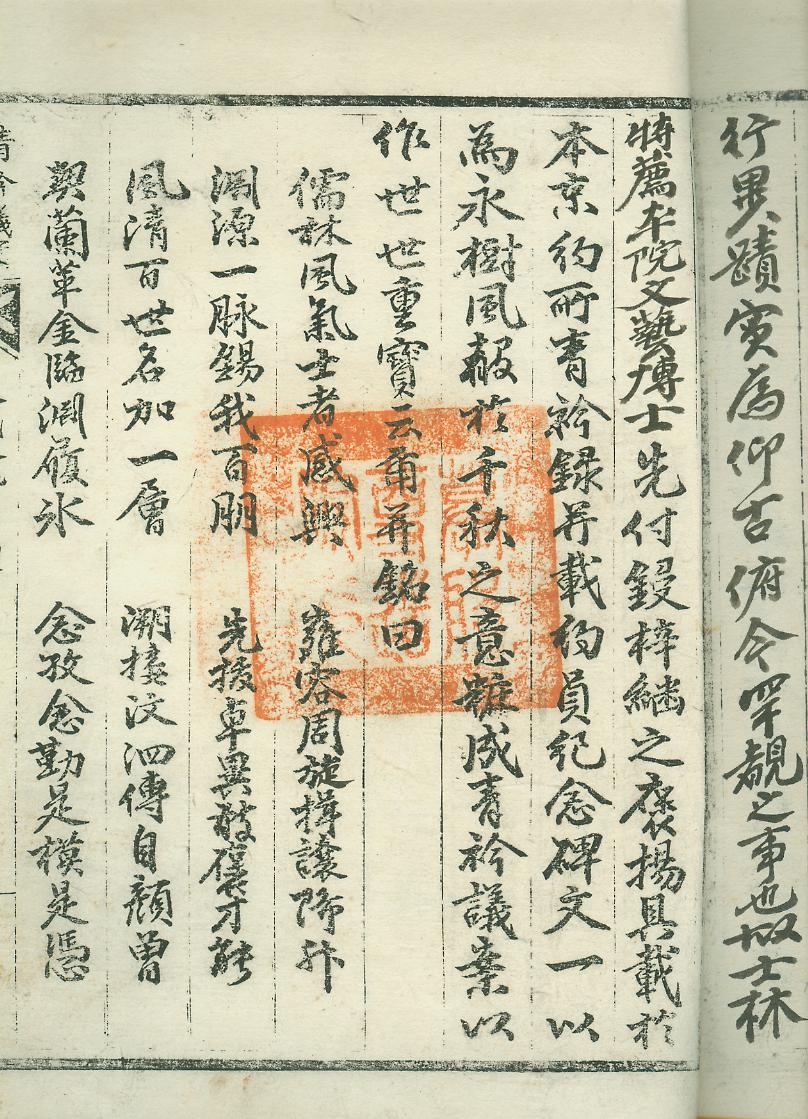 行異蹟實為仰古俯今罕覩之事也故士林
將薦本院文藝博士先付鋟梓繼之褒揚具載於
本京約所青衿錄并載約員紀念碑文一以
為永樹風轂於千秋之意粧成青衿議案以
作世世重寶云爾并銘曰
儒林風氣士者感興 雍容周旋揖讓降升
淵源一脉錫我百朋 先後卓異敼褒才能
風清百世名加一層 溯接汶泗傳自顏曾
契蘭革金臨淵履氷 念孜念勤是模是憑
青衿議案